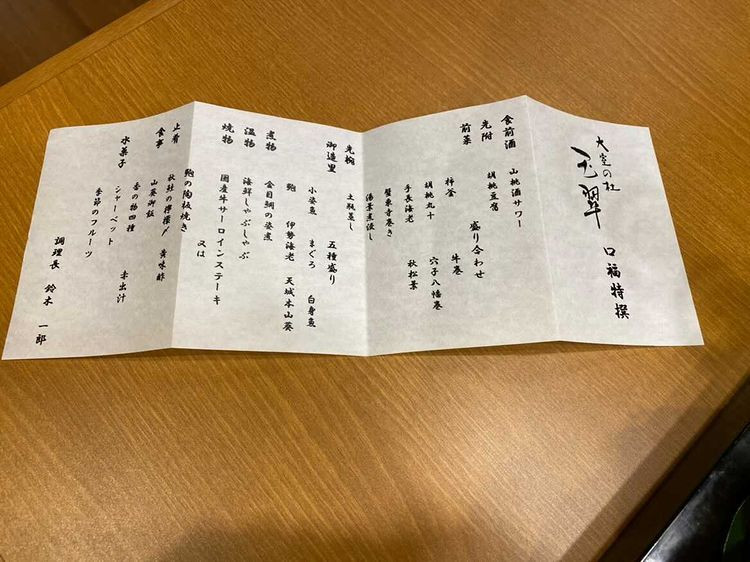 大室の杜
玉翠
口福特撰
食前酒
山桃酒サワー
先附
胡桃豆腐
前菜
盛り合わせ
柿釜
牛巻
胡桃丸十
穴子八幡巻
手長海老
秋松葉
蟹東寺巻き
湯葉煮浸し
先椀
土瓶蒸し
御造里
五種盛り
小姿魚
まぐろ
白身魚
鮑
伊勢海老
天城本山葵
煮物
金目鯛の姿煮
温物
海鮮しゃぶしゃぶ
焼物
国産牛サーロインステーキ
又は
鮑の陶板焼き
止肴
秋鮭の
黄味酢
食事
山菜御飯
香の物四種
赤出汁
水菓子
シャーベット
季節のフルーツ
調理長
鈴木
一郎